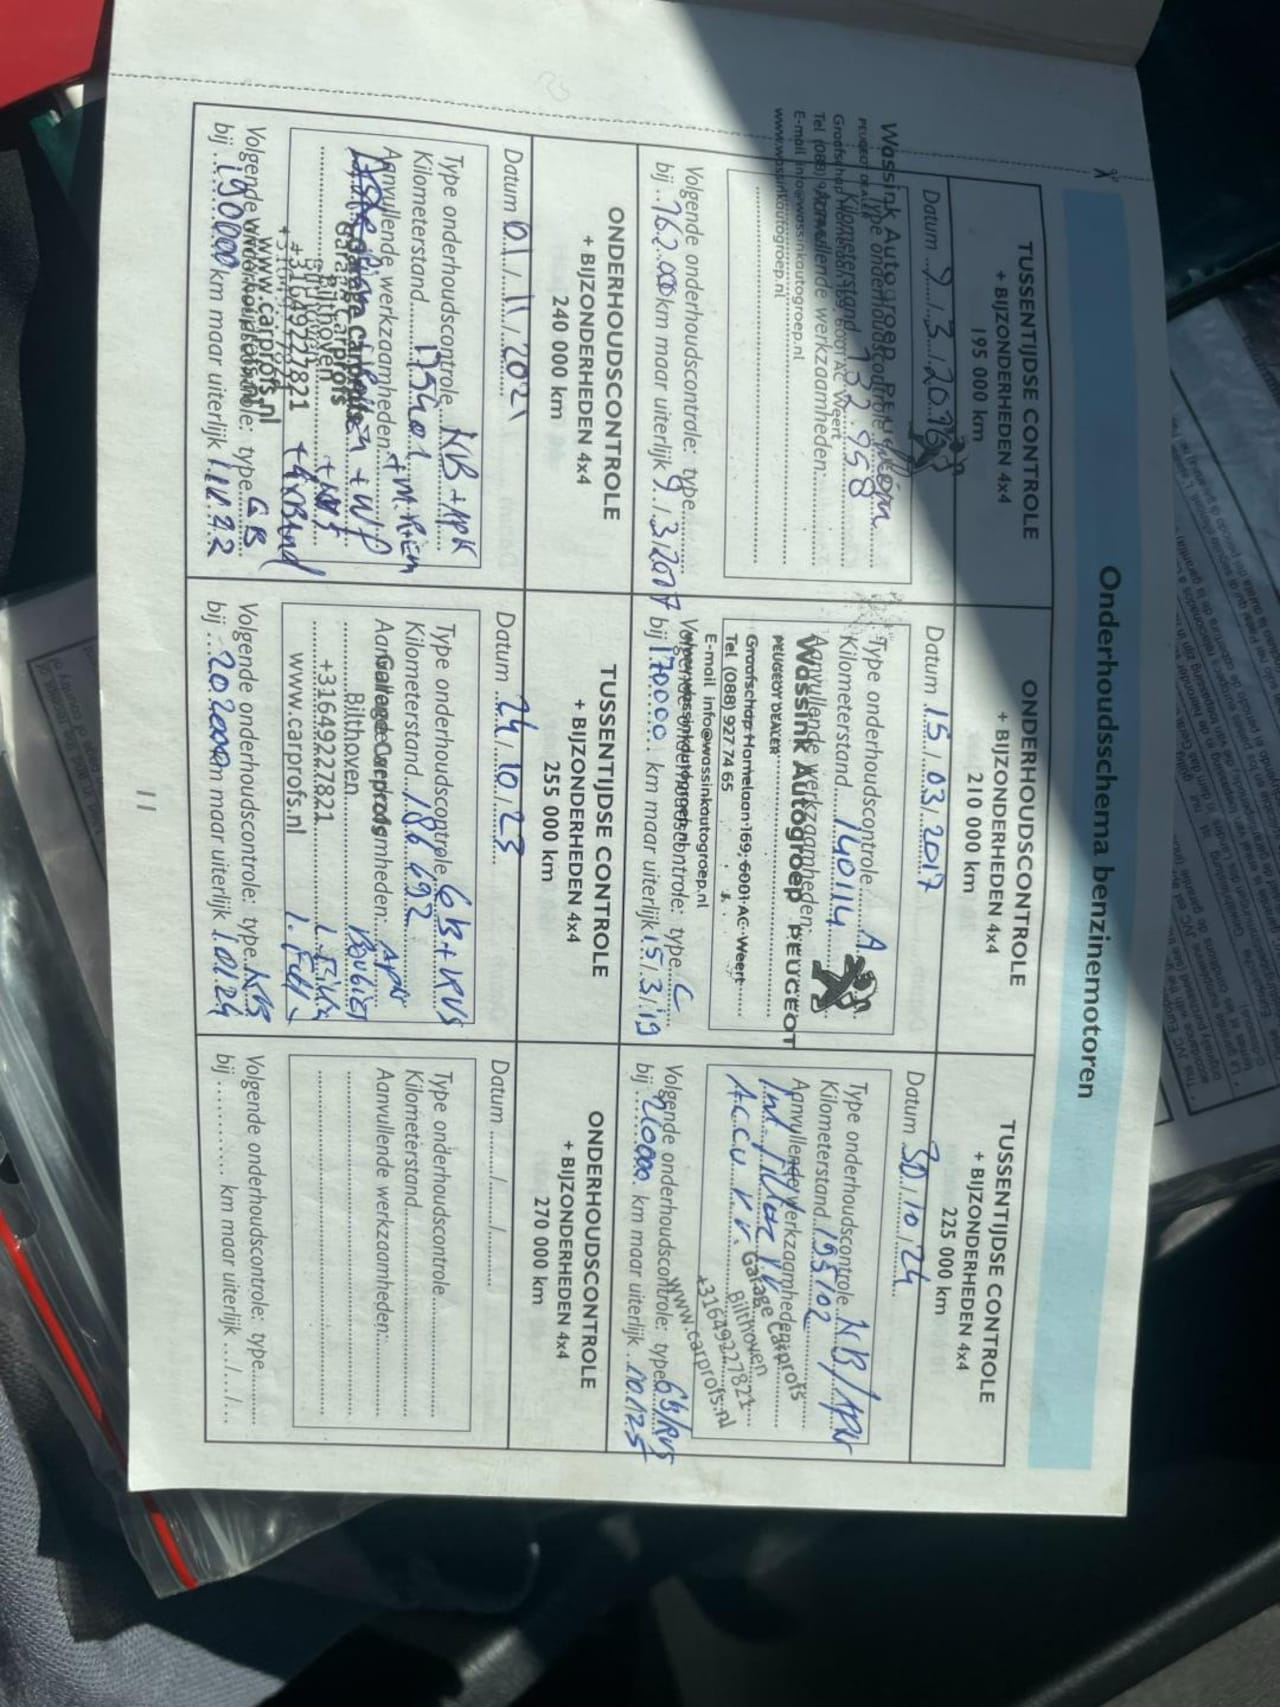 Onderhoudsschema benzinemotoren
TUSSENTIJDSE CONTROLE
+ BIJZONDERHEDEN 4x4
195 000 km
Datum 9/3/2016
Type onderhoudscontrole
Kilometerstand 132.958
Aanvullende werkzaamheden:
Wassink Autogroep PEUGEOT
PEUGEOT DEALER
Graafschap Hornelaan 169, 6001 AC Weert
Tel (088) 927 74 65
E-mail info@wassinkautogroep.nl
www.wassinkautogroep.nl
Volgende onderhoudscontrole: type
bij 162.000 km maar uiterlijk 9/3/2017
ONDERHOUDSCONTROLE
+ BIJZONDERHEDEN 4x4
210 000 km
Datum 15/03/2017
Type onderhoudscontrole A
Kilometerstand 140114
Aanvullende werkzaamheden:
Wassink Autogroep PEUGEOT
PEUGEOT DEALER
Graafschap Hornelaan 169, 6001 AC Weert
Tel (088) 927 74 65
E-mail info@wassinkautogroep.nl
www.wassinkautogroep.nl
Volgende onderhoudscontrole: type C
bij 170000 km maar uiterlijk 15/3/19
TUSSENTIJDSE CONTROLE
+ BIJZONDERHEDEN 4x4
225 000 km
Datum 30/10/24
Type onderhoudscontrole NB/APK
Kilometerstand 195102
Aanvullende werkzaamheden:
Int filter VV
Accu VV.
Garage Carprofs
Bilthoven
+31649227821
www.carprofs.nl
Volgende onderhoudscontrole: type GB/RVS
bij 220000 km maar uiterlijk /10/25
ONDERHOUDSCONTROLE
+ BIJZONDERHEDEN 4x4
240 000 km
Datum 01/11/2021
Type onderhoudscontrole NB+APK
Kilometerstand 175401
Aanvullende werkzaamheden:
Garage Carprofs
Bilthoven
+31649227821
www.carprofs.nl
Volgende onderhoudscontrole: type GB
bij 190000 km maar uiterlijk 1/11/22
TUSSENTIJDSE CONTROLE
+ BIJZONDERHEDEN 4x4
255 000 km
Datum 24/10/23
Type onderhoudscontrole GB+RVS
Kilometerstand 186692
Aanvullende werkzaamheden: APK
Garage Carprofs
Bilthoven
+31649227821
www.carprofs.nl
Volgende onderhoudscontrole: type
bij 202000 km maar uiterlijk
ONDERHOUDSCONTROLE
+ BIJZONDERHEDEN 4x4
270 000 km
Datum ......../......../........
Type onderhoudscontrole
Kilometerstand
Aanvullende werkzaamheden:
Volgende onderhoudscontrole: type
bij .......... km maar uiterlijk .../.../...
11